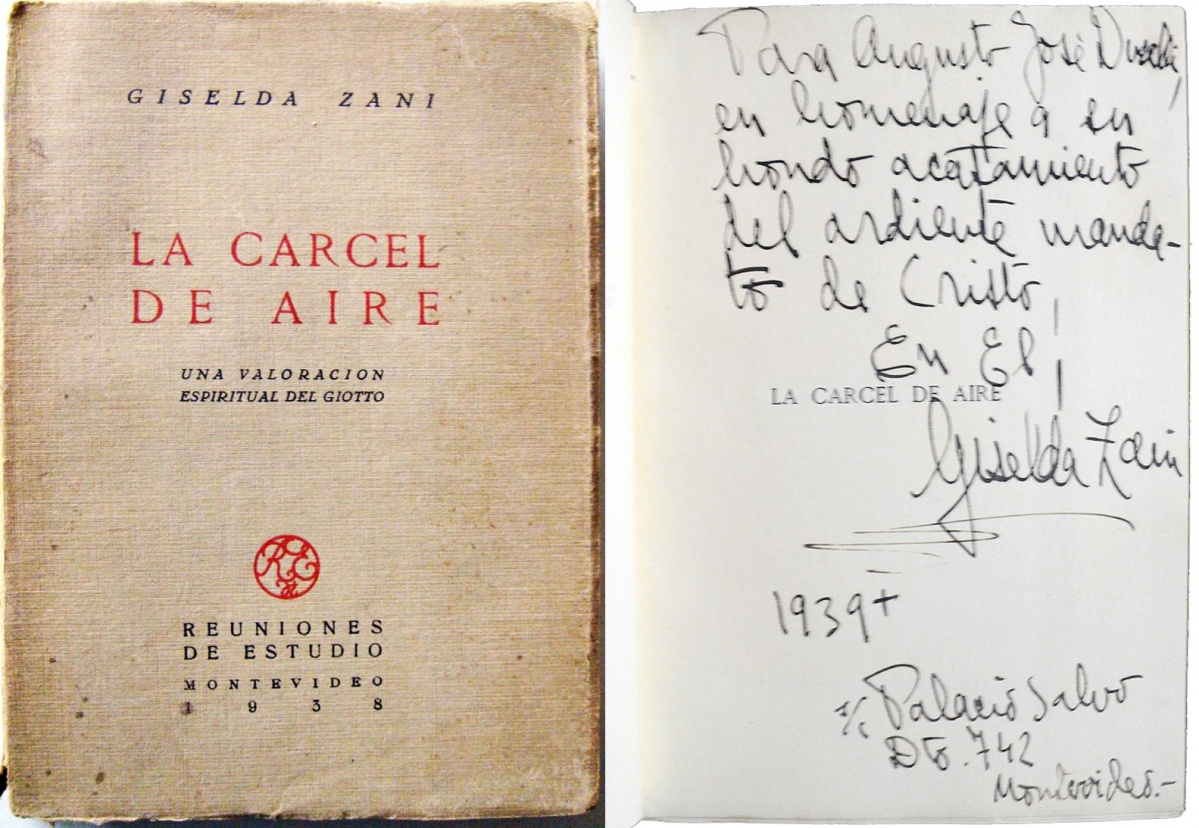 GISELDA ZANI
LA CARCEL
DE AIRE
UNA VALORACION
ESPIRITUAL DEL GIOTTO
REUNIONES
DE ESTUDIO
MONTEVIDEO
1938
Para Augusto José
en homenaje a su
hondo acatamiento
del ardiente manda-
to de Cristo,
En El,
LA CARCEL DE AIRE
Giselda Zani
1939+
Palacio Salvo
Dto. 742
Montevideo.-